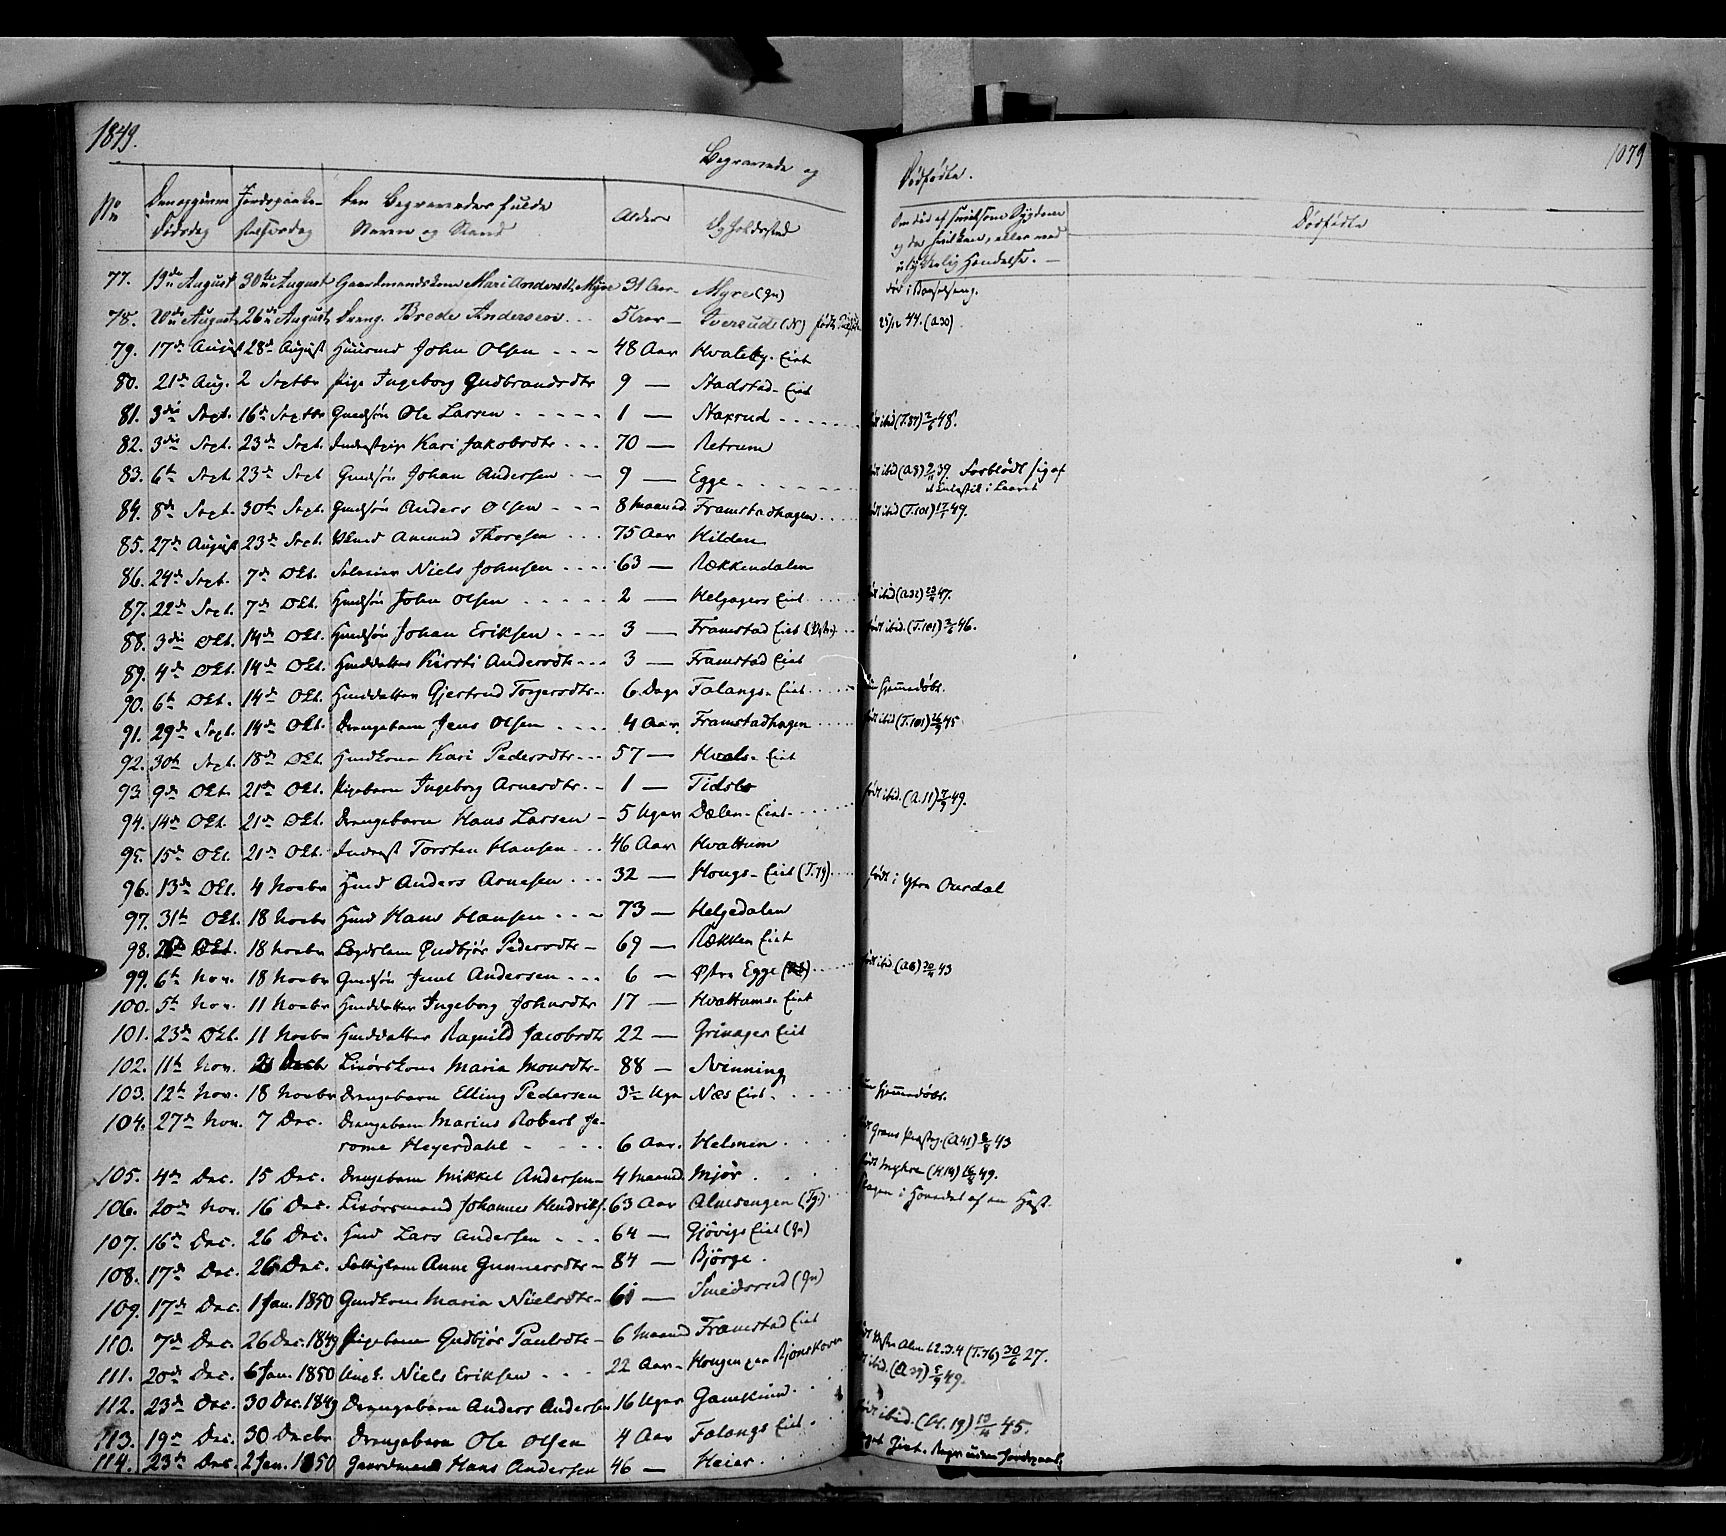 1849.
Begravede og
Dødfødte.
1079
No
Den opgivne Dødsdag
Jordspaakastelsesdag
Den Begravedes fulde Navn og Stand
Alder
Opholdssted
Om død af hvilken Sygdom
ulykkelig Hændelse. —
Dødfødte
77. 19de August 30te August Gaardmandskone Mari Andersdtr Myre 31 Aar Myre (Gn) død i Barselseng.
78. August 26de August Dreng Brede Andersen 5 Aar — (N) født 25/12 44. (A.30)
79. 17de August 28de August Huusmd John Olsen - - - 48 Aar Hvaleby. Eiet
80. 21de Aug. 2 Septbr Pige Ingeborg Gudbrandsdtr 9 — Stadstad. Eiet
81. 3die Sept. 16de Septbr Gmdsøn Ole Larsen - - - 1 — Naxrud ibid (T.37) 48.
82. 3die Sept. 23de Sept. Kari Jakobsdtr - - - 70 — Retrum
83. 6te Sept 23de Sept Gmdsøn Johan Andersen - - 9 — Egge ibid (A.8) 39 Forblødt sig af
i Laaret
84. 8de Sept. 30te Sept. Gmdsøn Anders Olsen - - - 8 Maaned Framstadhagen ibid (T.101) 49.
85. 27de August 23de Sept. Amund Thoresen - - - 75 Aar Kilden
86. 24de Sept. 7de Okt. Niels Johnsen - - - 63 — Rækkendalen
87. 22de Sept. 7de Okt. Hmdsøn John Olsen - - - 2 — Helgagers Eiet ibid (A.32) 47.
88. 3die Okt. 14de Okt. Hmdsøn Johan Eriksen - - - 3 — Framstad Eiet født ibid. (T.101) 46.
89. 4de Okt. 14de Okt. Hmddatter Kirsti Andersdtr - - - 3 — Framstad Eiet
90. 6te Okt. 14de Okt. Hmddatter Gjertrud Torgersdtr - 6 Dage Falangs. Eiet hjemmedøbt.
91. 29de Sept. 14de Okt. Drengebarn Jens Olsen - - - 4 Aar. Framstadhagen født ibid (T.101) 45
92. 30te Sept. 18de Okt. Hmdkone Kari Pedersdtr - - - 57 — Hvals. Eiet
93 9de Okt. 21de Okt. Pigebarn Ingeborg Arnesdtr - - 1 — Tidslo født ibid. (A.11) 49.
94. 14de Okt. 21de Okt. Drengebarn Hans Larsen - 5 Uger Dælen. Eiet
95. 15de Okt. 21de Okt. Inderst Torsten Hansen - - - 46 Aar Hvattum
96. 13de Okt. 4 Novbr Hmd Anders Arnesen - - - 32 — Hougs. Eiet (T.79) født i Ytre Ourdal
97. 31te Okt. 18 Novbr Hmd Hans Hansen - - - 73 — Helgedalen
98. Okt. 18 Novbr Lægdslem Gudbjør Pedersdtr - 69 — Rækken Eiet
99. 6te Nov. 18 Novbr Gmdsøn Juul Andersen - - - 6 — Østre Egge født ibid (A.8) 43
100. 5te Nov. 11 Novbr Hmddatter Ingeborg Johnsdtr 17 — Hvattums. Eiet
101. 23de Okt. 11 Novbr Hmddatter Ragnild Jacobsdtr 22 — Grinager Eiet
102. 11te Nov. Decbr Livørskone Maria Monsdtr - 88 — Kvinning
103. 12te Nov. 18 Novbr Drengebarn Elling Pedersen 3 Uger Næs Eiet. hjemmedøbt.
104. 27de Nov. 7 Dec. Drengebarn Marius Robert Je-
rome Heyerdahl - - - 6 Aar. Helmen Grans Præstegj. (A.41) 43
105. 4de Dec. 15 Dec. Drengebarn Mikkel Andersen 4 Maaned. Mjør født Myhre (H.19) 49.
106. 20de Nov. 16 Dec. Livørsmand Johannes Hendriks. 63 Aar Almsengen (Tg.) Slagen i Hovedet af en Hest.
107. 16de Dec. 26 Dec. Hmd Lars Andersen - - - 64 — Gjøvigs Eiet (Gn)
108. 17de Dec. 26 Dec. Fattiglem Anne Gunnersdtr - 84 — Bjørge.
109. 17de Dec. 1 Jan. 1850 Gmdkone Maria Nielsdtr - 61 — Smedsrud (Gn)
110. 7de Dec. 26 Dec. 1849 Pigebarn Gudbjør Paulsdtr - 6 Maaned Framstad Eiet
111. 20de Dec. 6 Jan. 1850 Ungk. Niels Eriksen - - - 22 Aar - Hougen paa Bjoneskoven Alm. 62.3.4 (T.76) 30/6 27.
112. 23de Dec. 30 Dec. 1849 Drengebarn Anders Andersen 16 Uger Gamkinn ibid. (A.39) 5/9 49.
113. 19de Dec. 30 Decbr Drengebarn Ole Olsen 4 Aar Falangs Eiet født ibid. (H.19) 45.
114. 23de Dec. 2 Jan. 1850 Gaardmand Hans Andersen 46 — Heier.